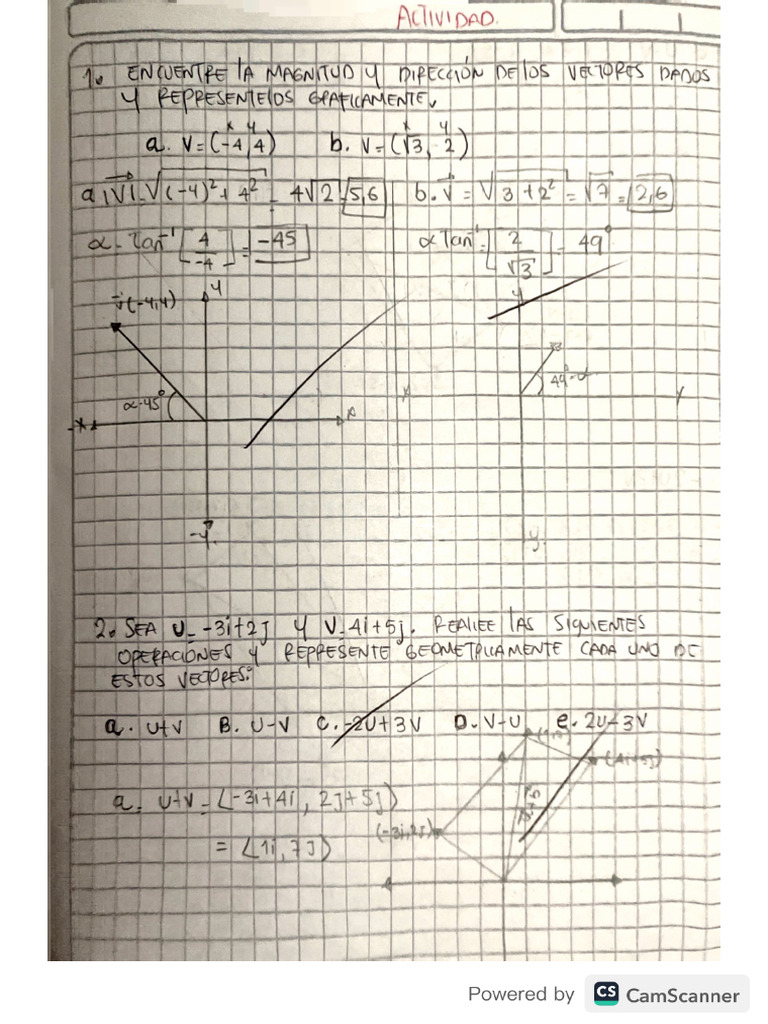 ACTIVIDAD.
1. ENCUENTRE LA MAGNITUD Y DIRECCIÓN DE LOS VECTORES DADOS
Y REPRESENTELOS GRAFICAMENTE.
x y x y
a. V=(-4,4) b. V=(√3, 2)
a. |V|=√(-4)²+4² = 4√2 = 5,6 b. V = √3+2² = √7 = 2,6
α = Tan⁻¹ [4/-4] = -45 α Tan⁻¹ = [2/√3] = 49°
v(-4,4) y y
α-45° 49°=α
-x x x
-y -y
2. SEA U= -3i+2j Y V=4i+5j. REALICE LAS SIGUIENTES
OPERACIONES Y REPRESENTE GEOMETRICAMENTE CADA UNO DE
ESTOS VECTORES:
a. U+V B. U-V C. -2U+3V D. V-U e. 2U-3V
(4i+5j)
a. U+V = (-3i+4i, 2j+5j)
(-3i,2j)
= (1i, 7j)
Powered by CS CamScanner